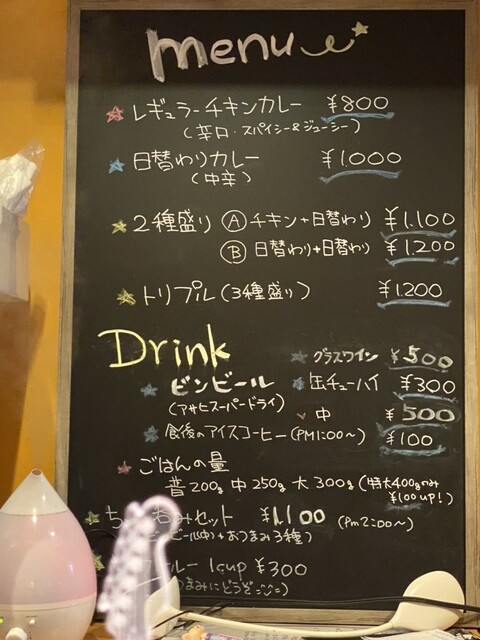 menu
レギュラーチキンカレー ¥800
(辛口・スパイシー&ジューシー)
日替わりカレー ¥1.000
(中辛)
2種盛り Ⓐ チキン+日替わり ¥1.100
Ⓑ 日替わり+日替わり ¥1.200
トリプル(3種盛り) ¥1200
Drink
グラスワイン ¥500
ビンビール 缶チューハイ ¥300
(アサヒスーパードライ) 中 ¥500
食後のアイスコーヒー(PM1:00〜) ¥100
ごはんの量
普200g 中250g 大300g (特大400gのみ
¥100up!)
セット ¥1.100 (Pm2:00〜)
ビール(中)+おつまみ3種)
ルー 1cup ¥300
つまみにどうぞ